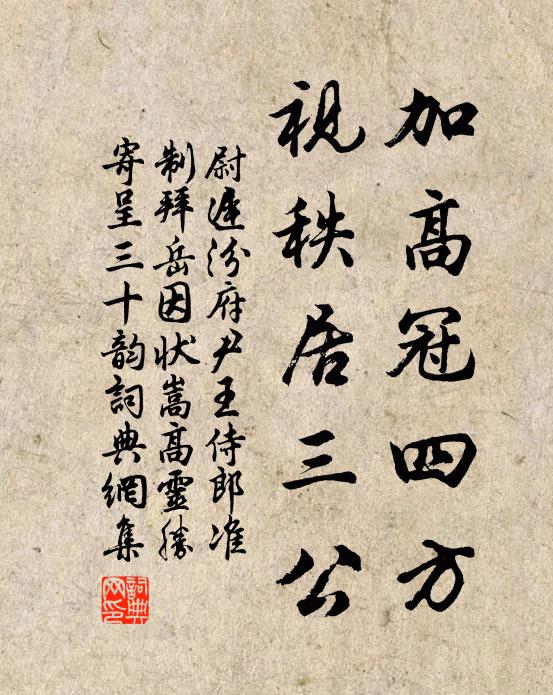 加高冠四方
視秩居三公
尉遲汾府尹王侍郎准
制拜岳因狀嵩高靈勝
寄呈三十韵詞典網集
詞典
网印